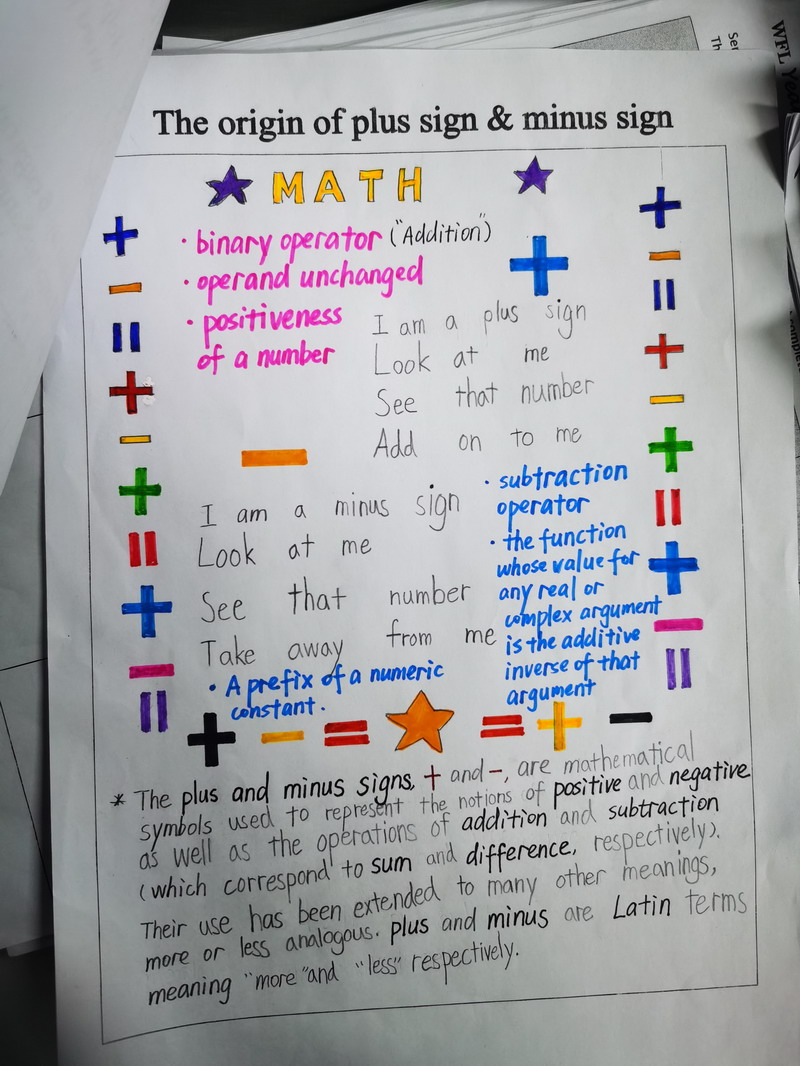 The origin of plus sign & minus sign
MATH
· binary operator ("Addition")
· operand unchanged
· positiveness
of a number
+
I am a plus sign
Look at me
See that number
Add on to me
−
I am a minus sign
Look at me
See that number
Take away from me
· A prefix of a numeric
constant.
· subtraction
operator
· the function
whose value for
any real or
complex argument
is the additive
inverse of that
argument
+ − = = + −
* The plus and minus signs, + and −, are mathematical
symbols used to represent the notions of positive and negative
as well as the operations of addition and subtraction
(which correspond to sum and difference, respectively).
Their use has been extended to many other meanings,
more or less analogous. plus and minus are Latin terms
meaning "more" and "less" respectively.
WFL Yea
Ser
Th